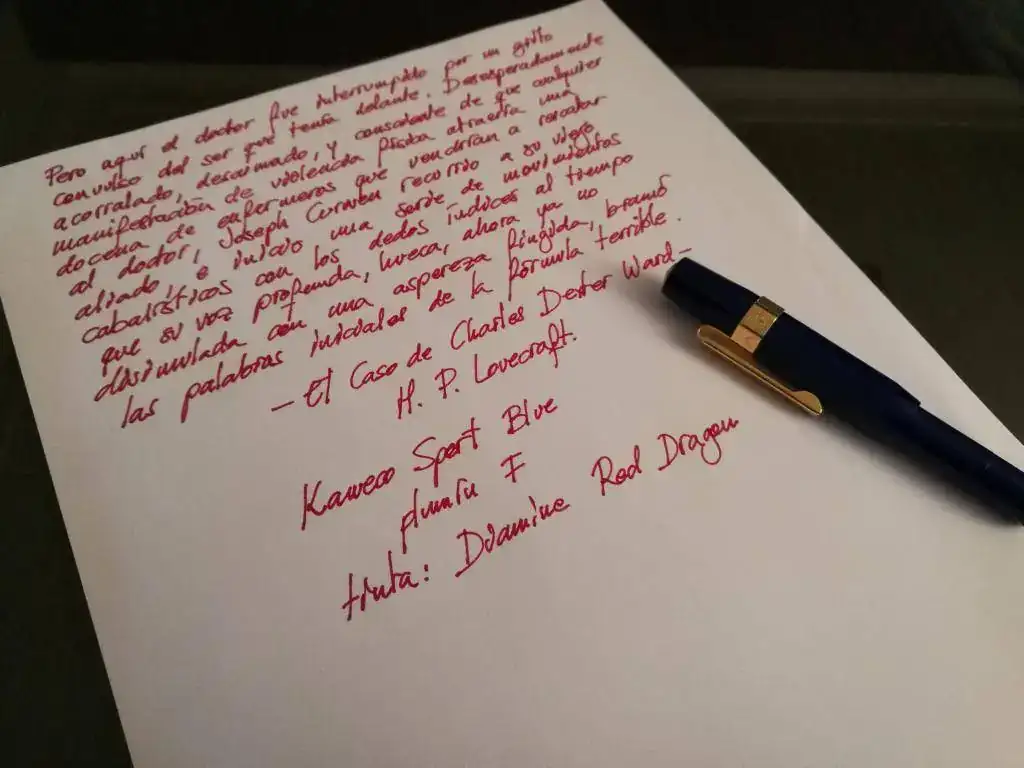 Pero aquí el doctor fue interrumpido por un grito
convulso del ser que tenía delante. Desesperadamente
acorralado, desarmado, y consciente de que cualquier
manifestación de violencia física atraería una
docena de enfermeras que vendrían a rescatar
al doctor, Joseph Curwen recurrió a su viejo
aliado, e inició una serie de movimientos
cabalísticos con los dedos índices al tiempo
que su voz profunda, hueca, ahora ya no
disimulada con una aspereza fingida, bramó
las palabras iniciales de la fórmula terrible.
— El Caso de Charles Dexter Ward —
H. P. Lovecraft.
Kaweco Sport Blue
plumín F
tinta: Diamine Red Dragon